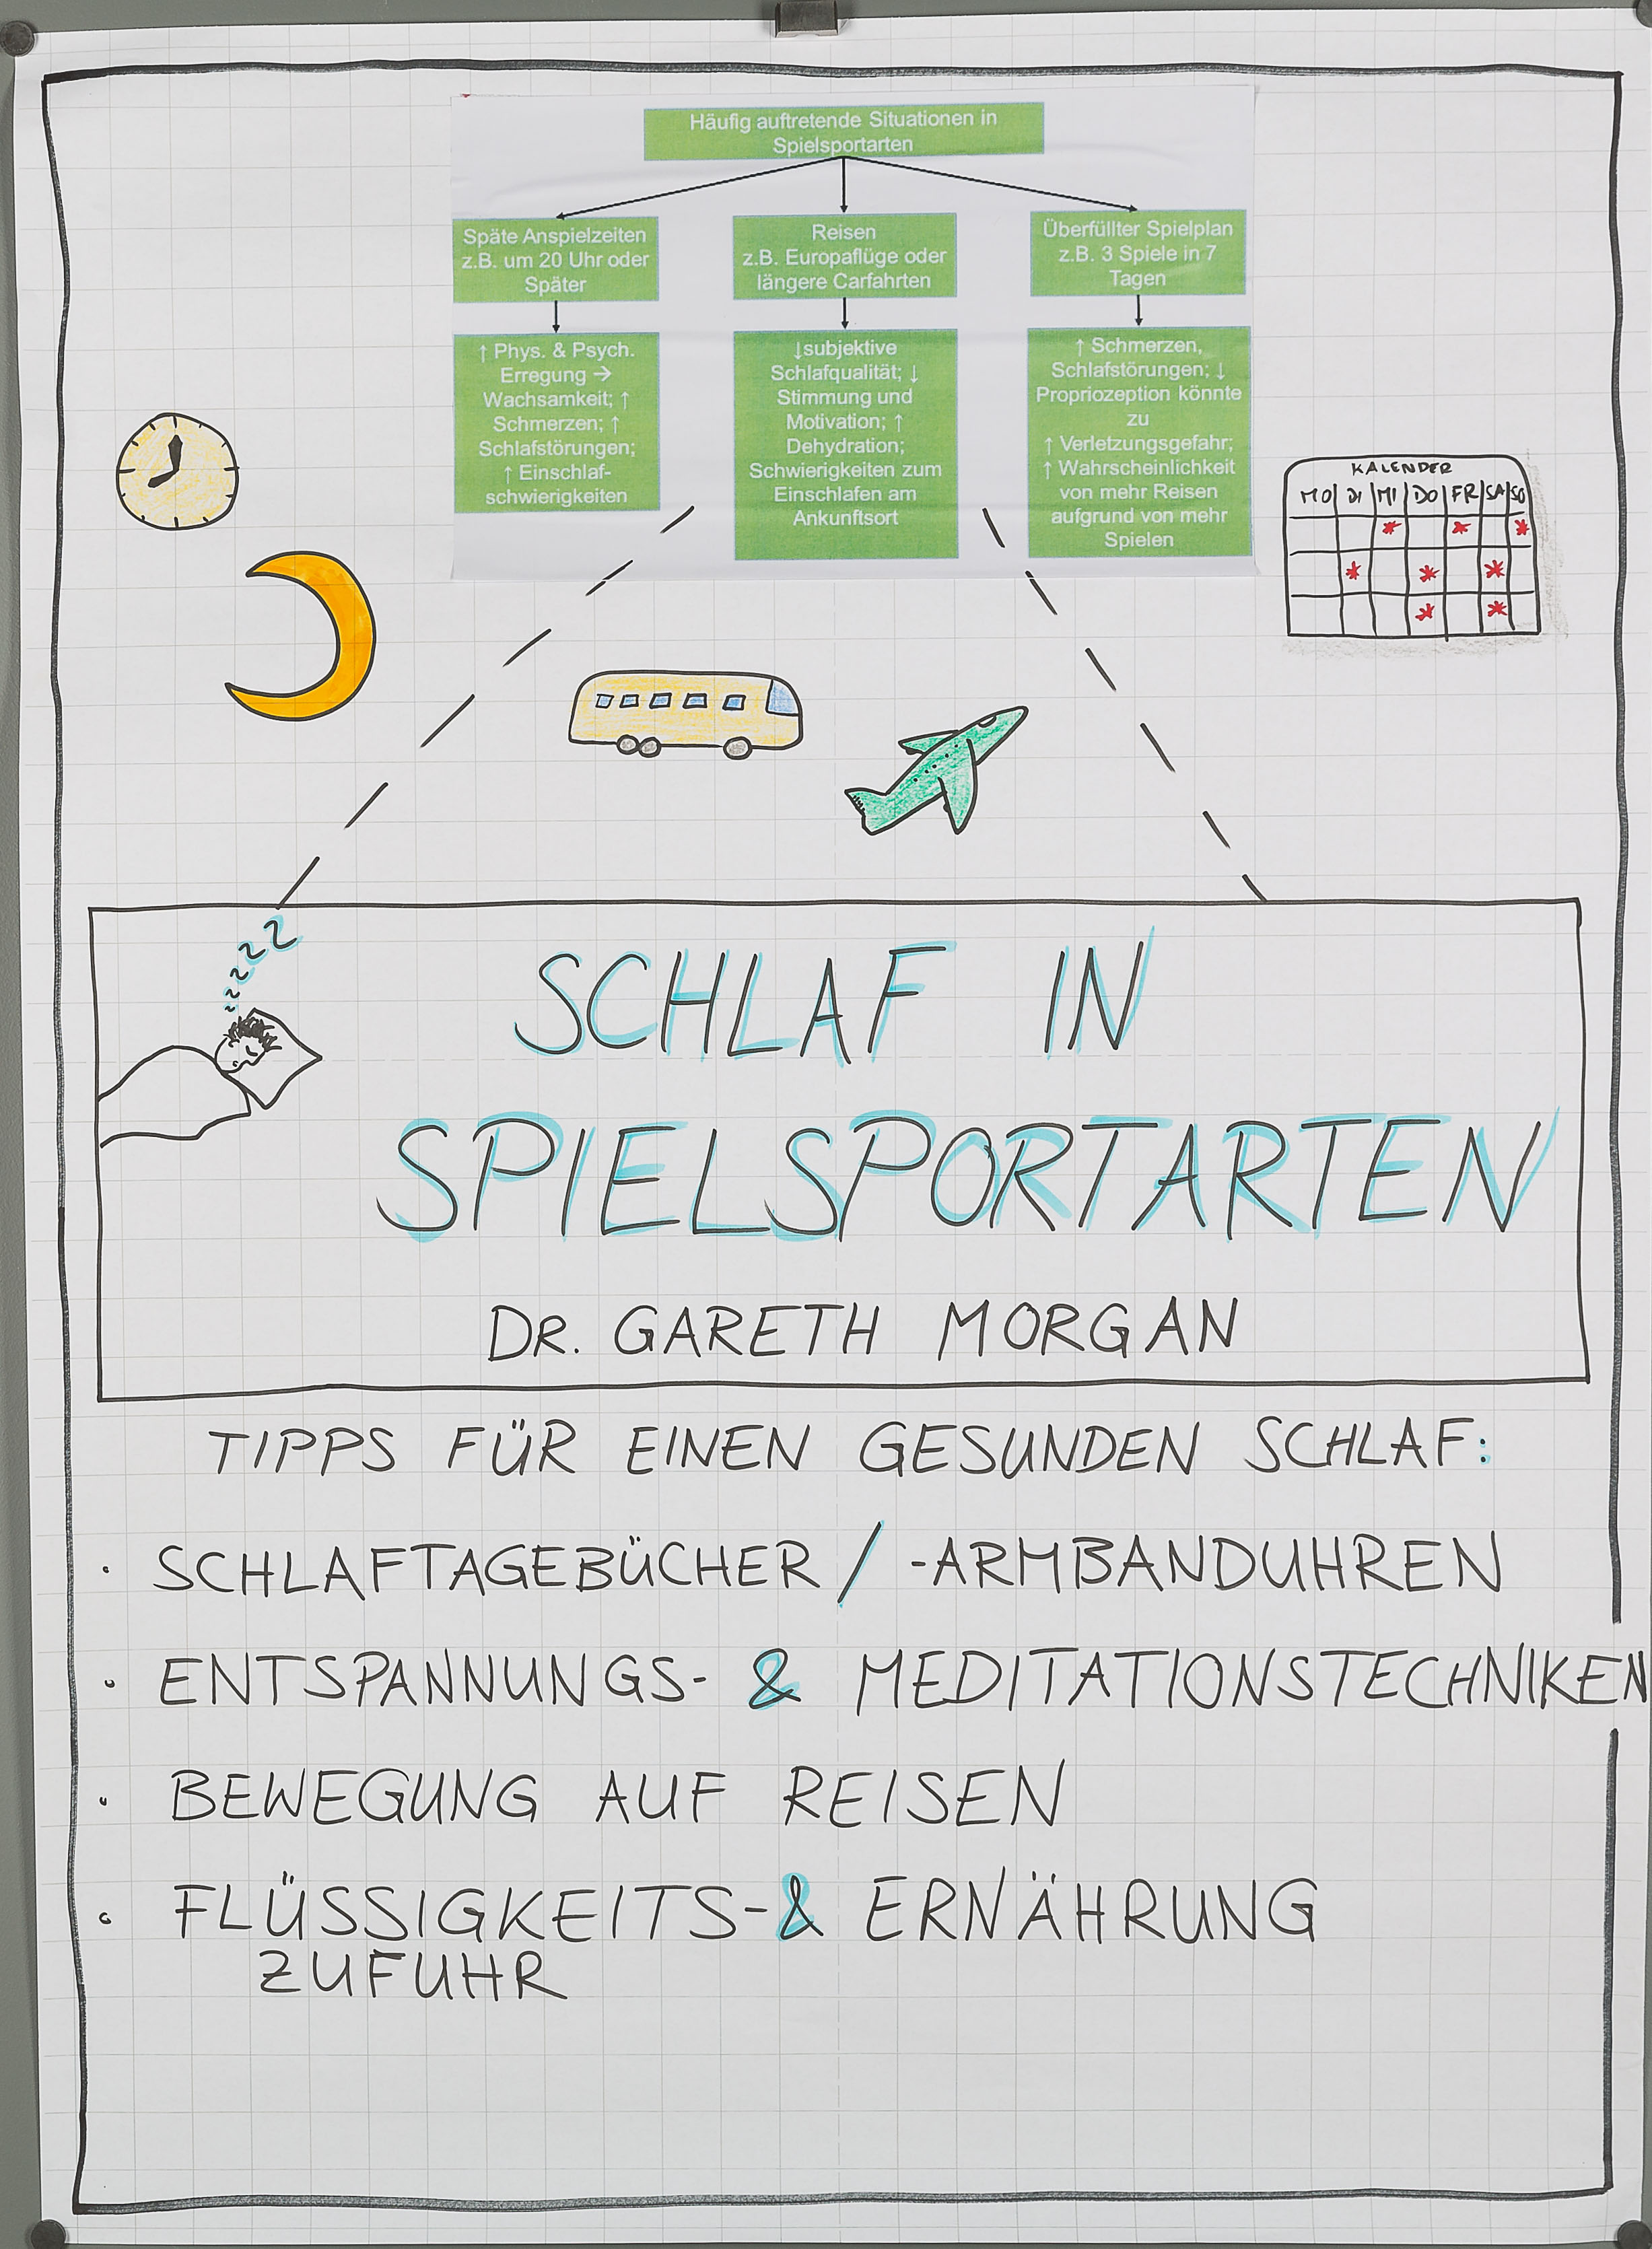 Häufig auftretende Situationen in
Spielsportarten
Späte Anspielzeiten
z.B. um 20 Uhr oder
Später
Reisen
z.B. Europaflüge oder
längere Carfahrten
Überfüllter Spielplan
z.B. 3 Spiele in 7
Tagen
↑ Phys. & Psych.
Erregung →
Wachsamkeit; ↑
Schmerzen; ↑
Schlafstörungen;
↑ Einschlaf-
schwierigkeiten
↓subjektive
Schlafqualität; ↓
Stimmung und
Motivation; ↑
Dehydration;
Schwierigkeiten zum
Einschlafen am
Ankunftsort
↑ Schmerzen,
Schlafstörungen; ↓
Propriozeption könnte
zu
↑ Verletzungsgefahr;
↑ Wahrscheinlichkeit
von mehr Reisen
aufgrund von mehr
Spielen
KALENDER
MO DI MI DO FR SA SO
zzzzz
SCHLAF IN
SPIELSPORTARTEN
DR. GARETH MORGAN
TIPPS FÜR EINEN GESUNDEN SCHLAF:
· SCHLAFTAGEBÜCHER / -ARMBANDUHREN
· ENTSPANNUNGS- & MEDITATIONSTECHNIKEN
· BEWEGUNG AUF REISEN
· FLÜSSIGKEITS-& ERNÄHRUNG
ZUFUHR